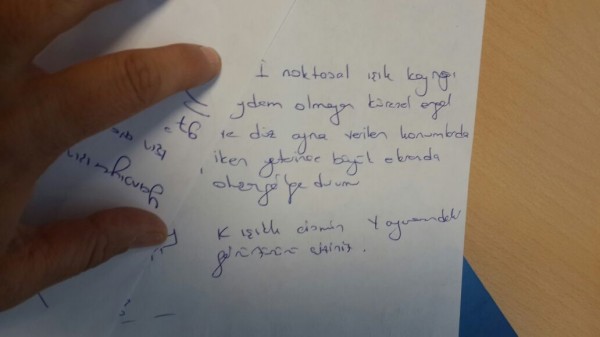 I noktasal ışık kaynağı
ydam olmayan küresel engel
ve düz ayna verilen konumlarda
iken yeterince büyük ekranda
gölge durum
K ışıklı cismin Y aynasındaki
görüntüsünü çiziniz.
için